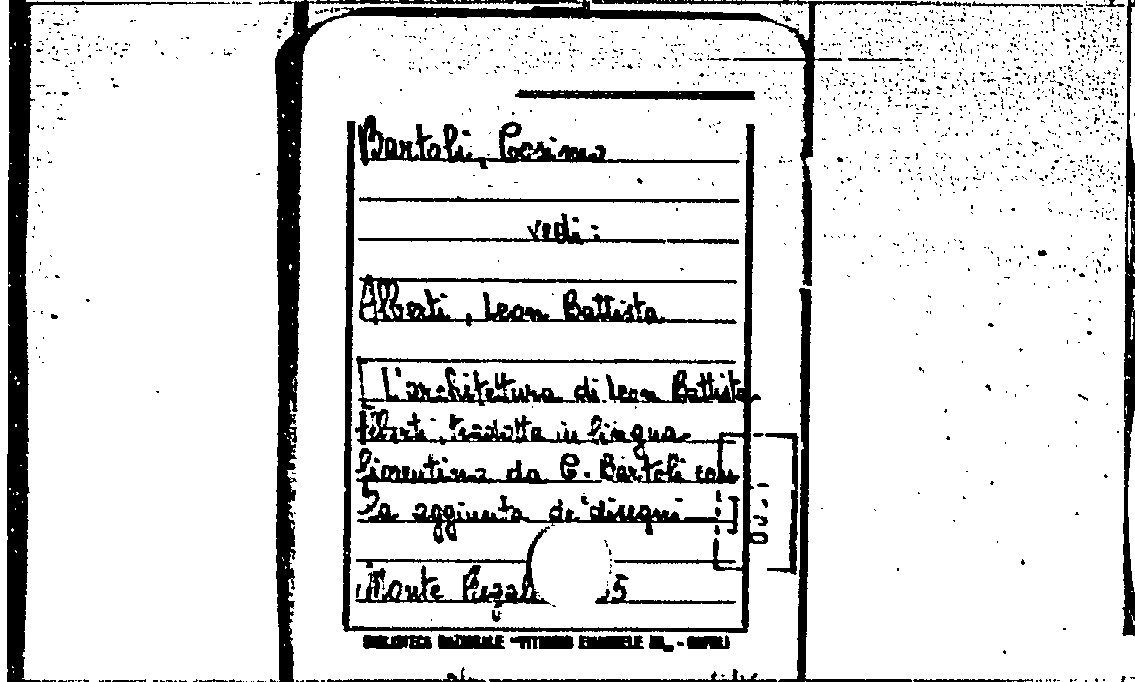 Bartoli, Cosimo
vedi:
Alberti, Leon Battista
[L'architettura di Leon Battista
Alberti, tradotta in lingua
fiorentina da C. Bartoli con
la aggiunta de' disegni]
Monte Regal 5
BIBLIOTECA NAZIONALE "VITTORIO EMANUELE III„ - NAPOLI